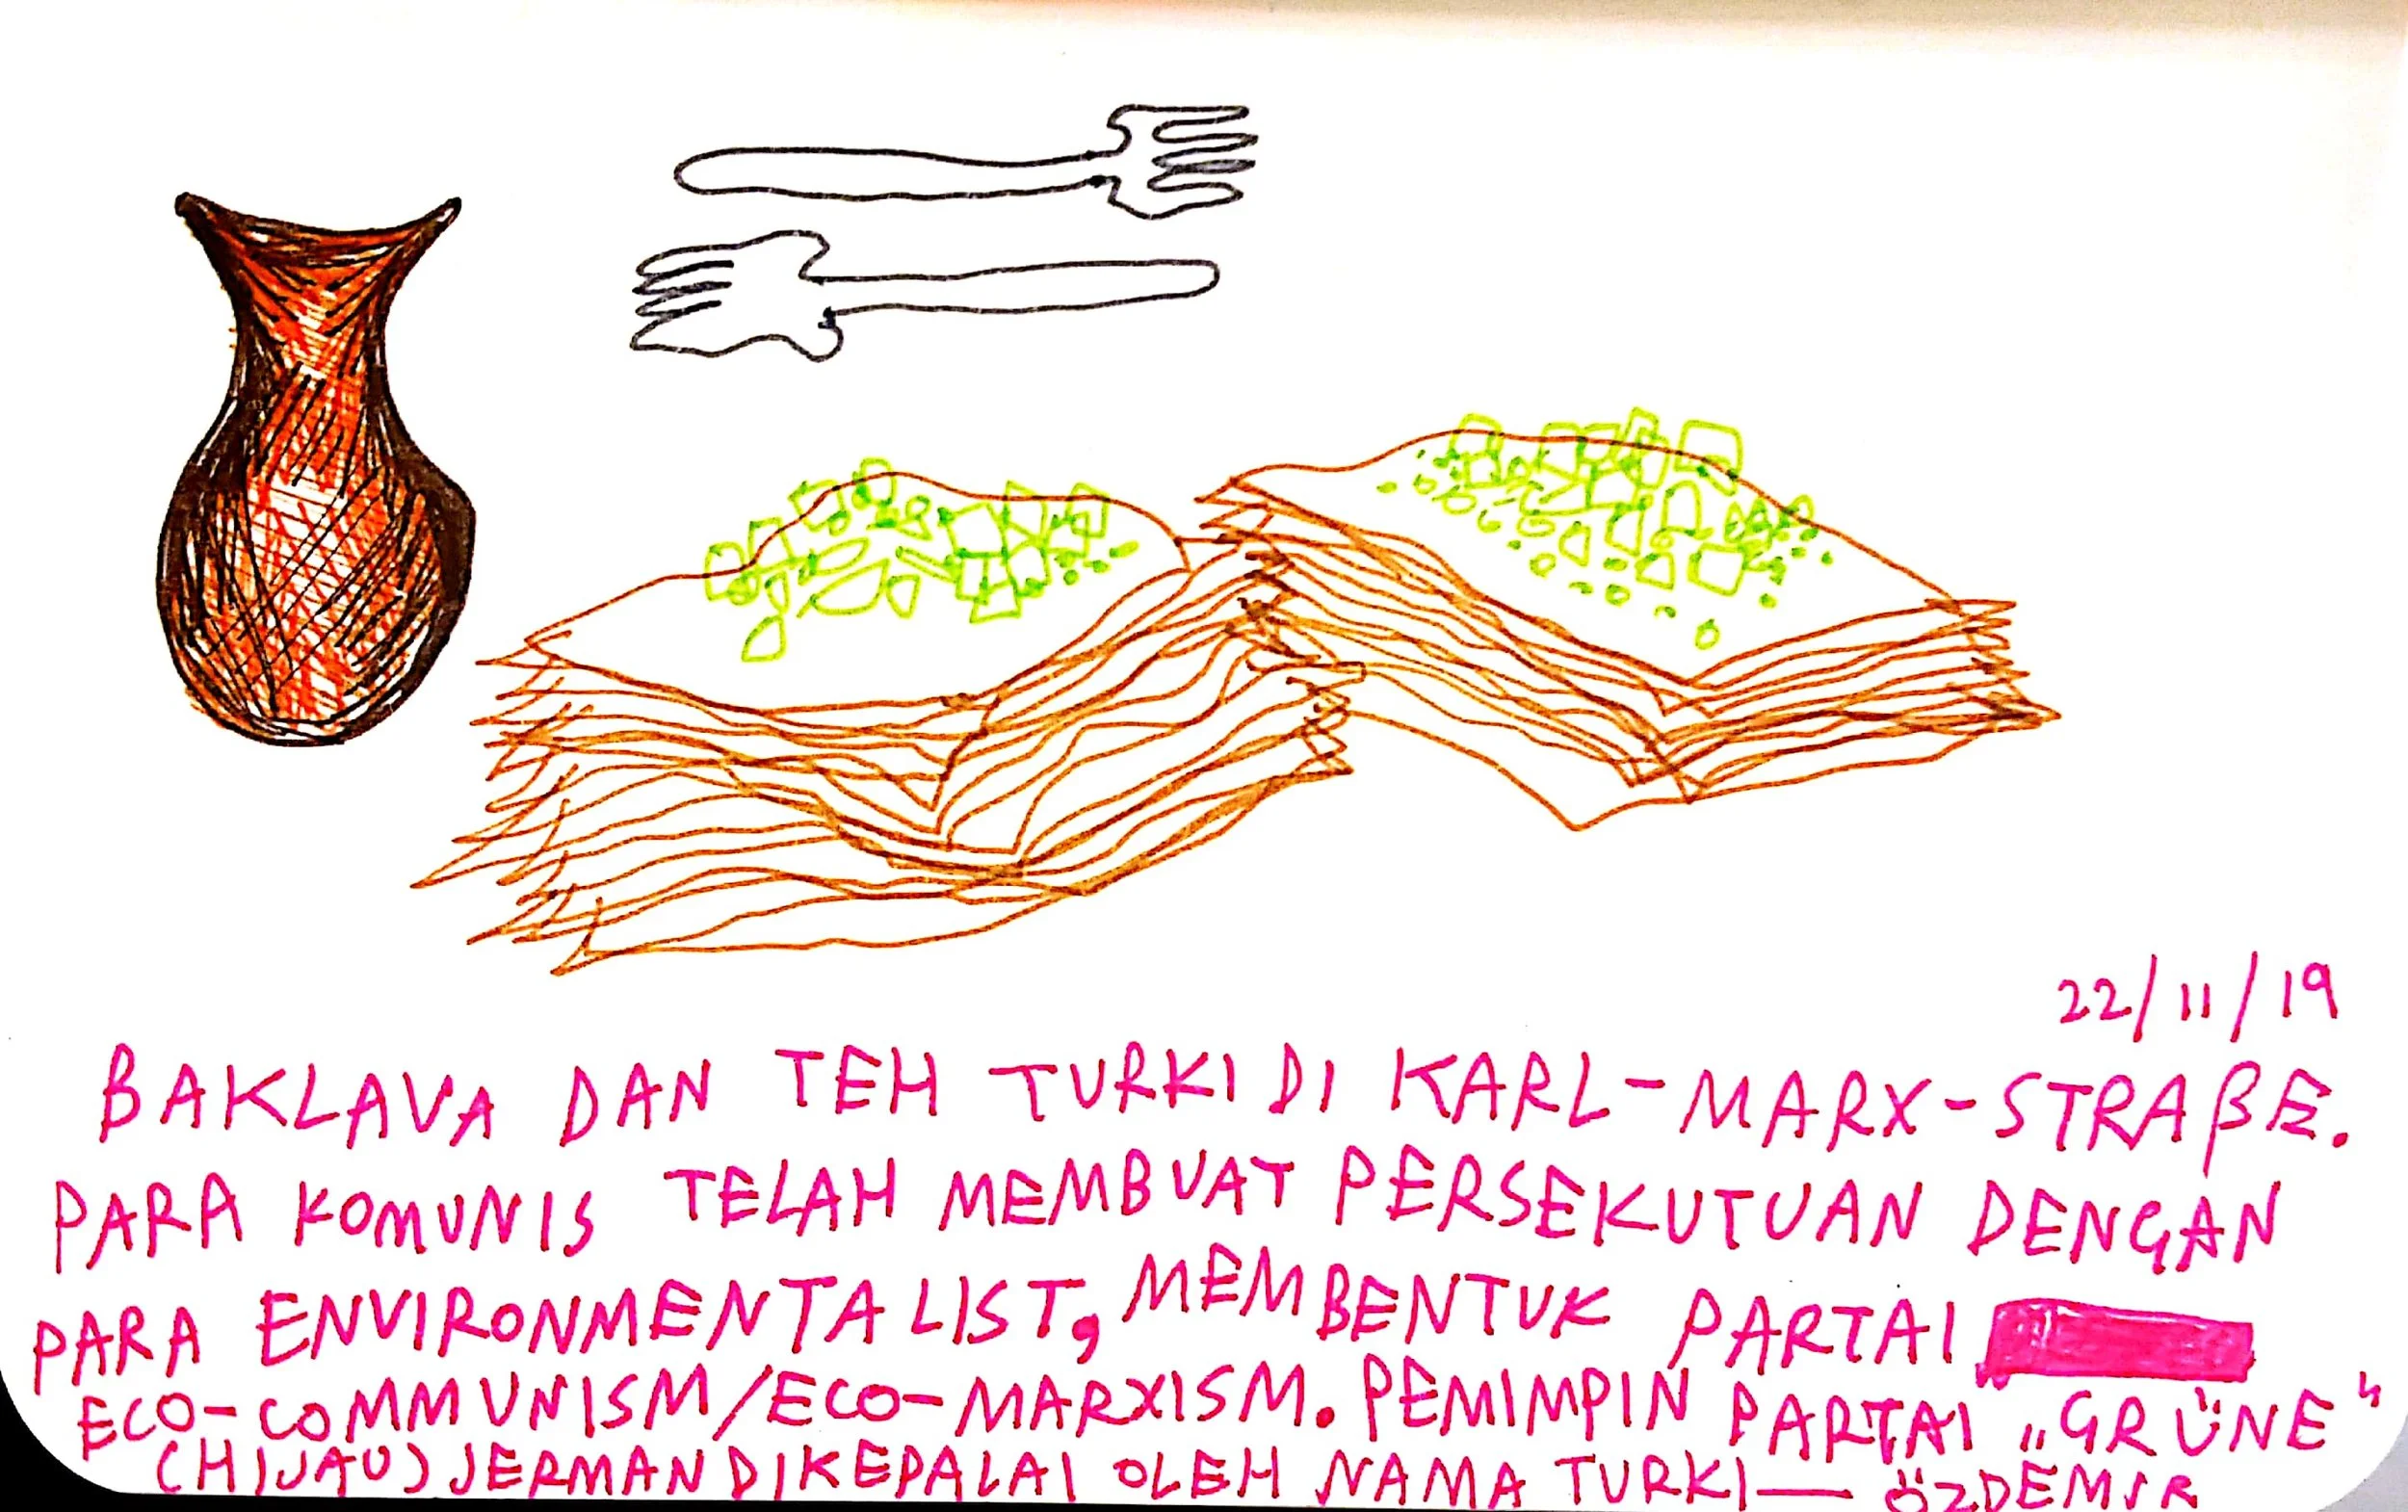 22/11/19
BAKLAVA DAN TEH TURKI DI KARL-MARX-STRAßE.
PARA KOMUNIS TELAH MEMBUAT PERSEKUTUAN DENGAN
PARA ENVIRONMENTALIST, MEMBENTUK PARTAI
ECO-COMMUNISM/ECO-MARXISM. PEMIMPIN PARTAI „GRÜNE“
(HIJAU) JERMAN DIKEPALAI OLEH NAMA TURKI— ÖZDEMIR